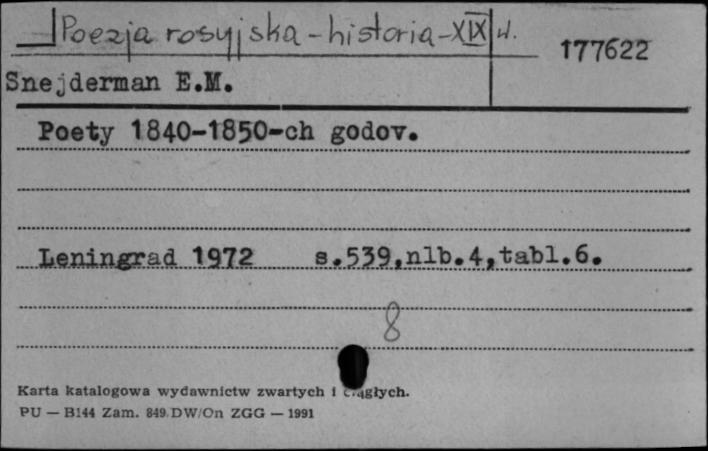 Poezja rosyjska - historia - XIX w.
177622
Snejderman E.M.
Poety 1840-1850-ch godov.
Leningrad 1972 s.539,nlb.4,tabl.6.
8
Karta katalogowa wydawnictw zwartych i ciągłych.
PU — B144 Zam. 849 DW/On ZGG — 1991